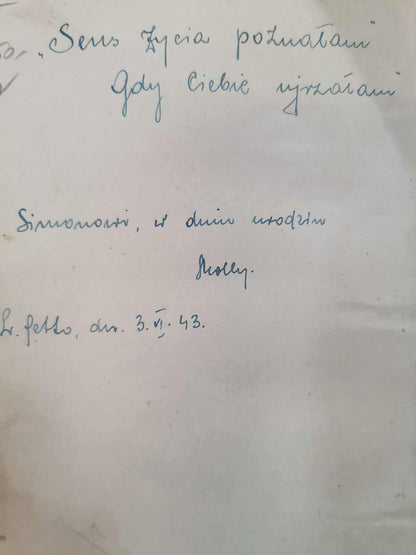 „Sens życia poznałam
Gdy Ciebie ujrzałam"
Simonowi, w dniu urodzin
Molly.
Getto, dn. 3.VI.43.